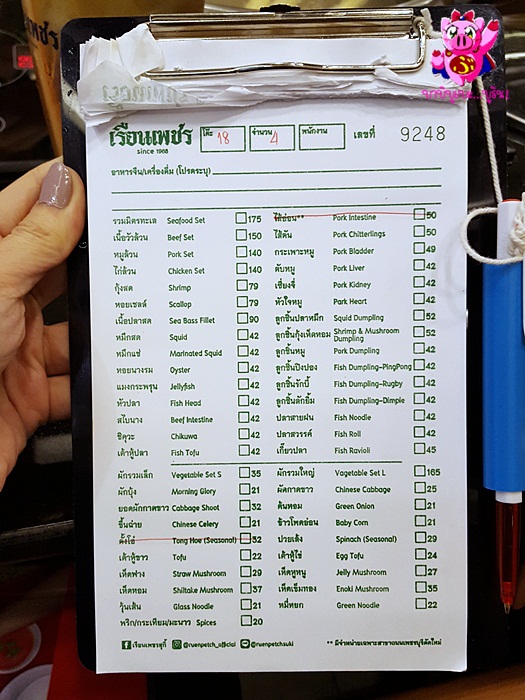 เรือนเพชร
since 1968
โต๊ะ 18 จำนวน 4 พนักงาน เลขที่ 9248
อาหารจีน/เครื่องดื่ม (โปรดระบุ)
รวมมิตรทะเล Seafood Set 175 ไส้อ่อน** Pork Intestine 50
เนื้อวัวล้วน Beef Set 150 ไส้ตัน Pork Chitterlings 50
หมูล้วน Pork Set 140 กระเพาะหมู Pork Bladder 49
ไก่ล้วน Chicken Set 140 ตับหมู Pork Liver 42
กุ้งสด Shrimp 79 เซี่ยงจี๊ Pork Kidney 42
หอยเชลล์ Scallop 79 หัวใจหมู Pork Heart 42
เนื้อปลาสด Sea Bass Fillet 90 ลูกชิ้นปลาหมึก Squid Dumpling 52
หมึกสด Squid 42 ลูกชิ้นกุ้งเห็ดหอม Shrimp & Mushroom Dumpling 52
หมึกแช่ Marinated Squid 42 ลูกชิ้นหมู Pork Dumpling 42
หอยนางรม Oyster 42 ลูกชิ้นปิงปอง Fish Dumpling-PingPong 42
แมงกะพรุน Jellyfish 42 ลูกชิ้นรักบี้ Fish Dumpling-Rugby 42
หัวปลา Fish Head 42 ลูกชิ้นลักยิ้ม Fish Dumpling-Dimple 42
สไบนาง Beef Intestine 42 ปลาสายฝน Fish Noodle 42
ชิคูวะ Chikuwa 42 ปลาสวรรค์ Fish Roll 42
เต้าหู้ปลา Fish Tofu 42 เกี๊ยวปลา Fish Ravioli 45
ผักรวมเล็ก Vegetable Set S 35 ผักรวมใหญ่ Vagetable Set L 165
ผักบุ้ง Morning Glory 21 ผักกาดขาว Chinese Cabbage 25
ยอดผักกาดขาว Cabbage Shoot 32 ต้นหอม Green Onion 21
ขึ้นฉ่าย Chinese Celery 21 ข้าวโพดอ่อน Baby Corn 21
ตั้งโอ๋ Tong Hoe (Seasonal) 32 ปวยเล้ง Spinach (Seasonal) 29
เต้าหู้ขาว Tofu 22 เต้าหู้ไข่ Egg Tofu 24
เห็ดฟาง Straw Mushroom 29 เห็ดหูหนู Jelly Mushroom 27
เห็ดหอม Shiitake Mushroom 37 เห็ดเข็มทอง Enoki Mushroom 35
วุ้นเส้น Glass Noodle 21 หมี่หยก Green Noodle 22
พริก/กระเทียม/มะนาว Spices 20
เรือนเพชรสุกี้ @ruenpetch_official @ruenpetchsuki ** มีจำหน่ายเฉพาะสาขาถนนเพชรบุรีตัดใหม่